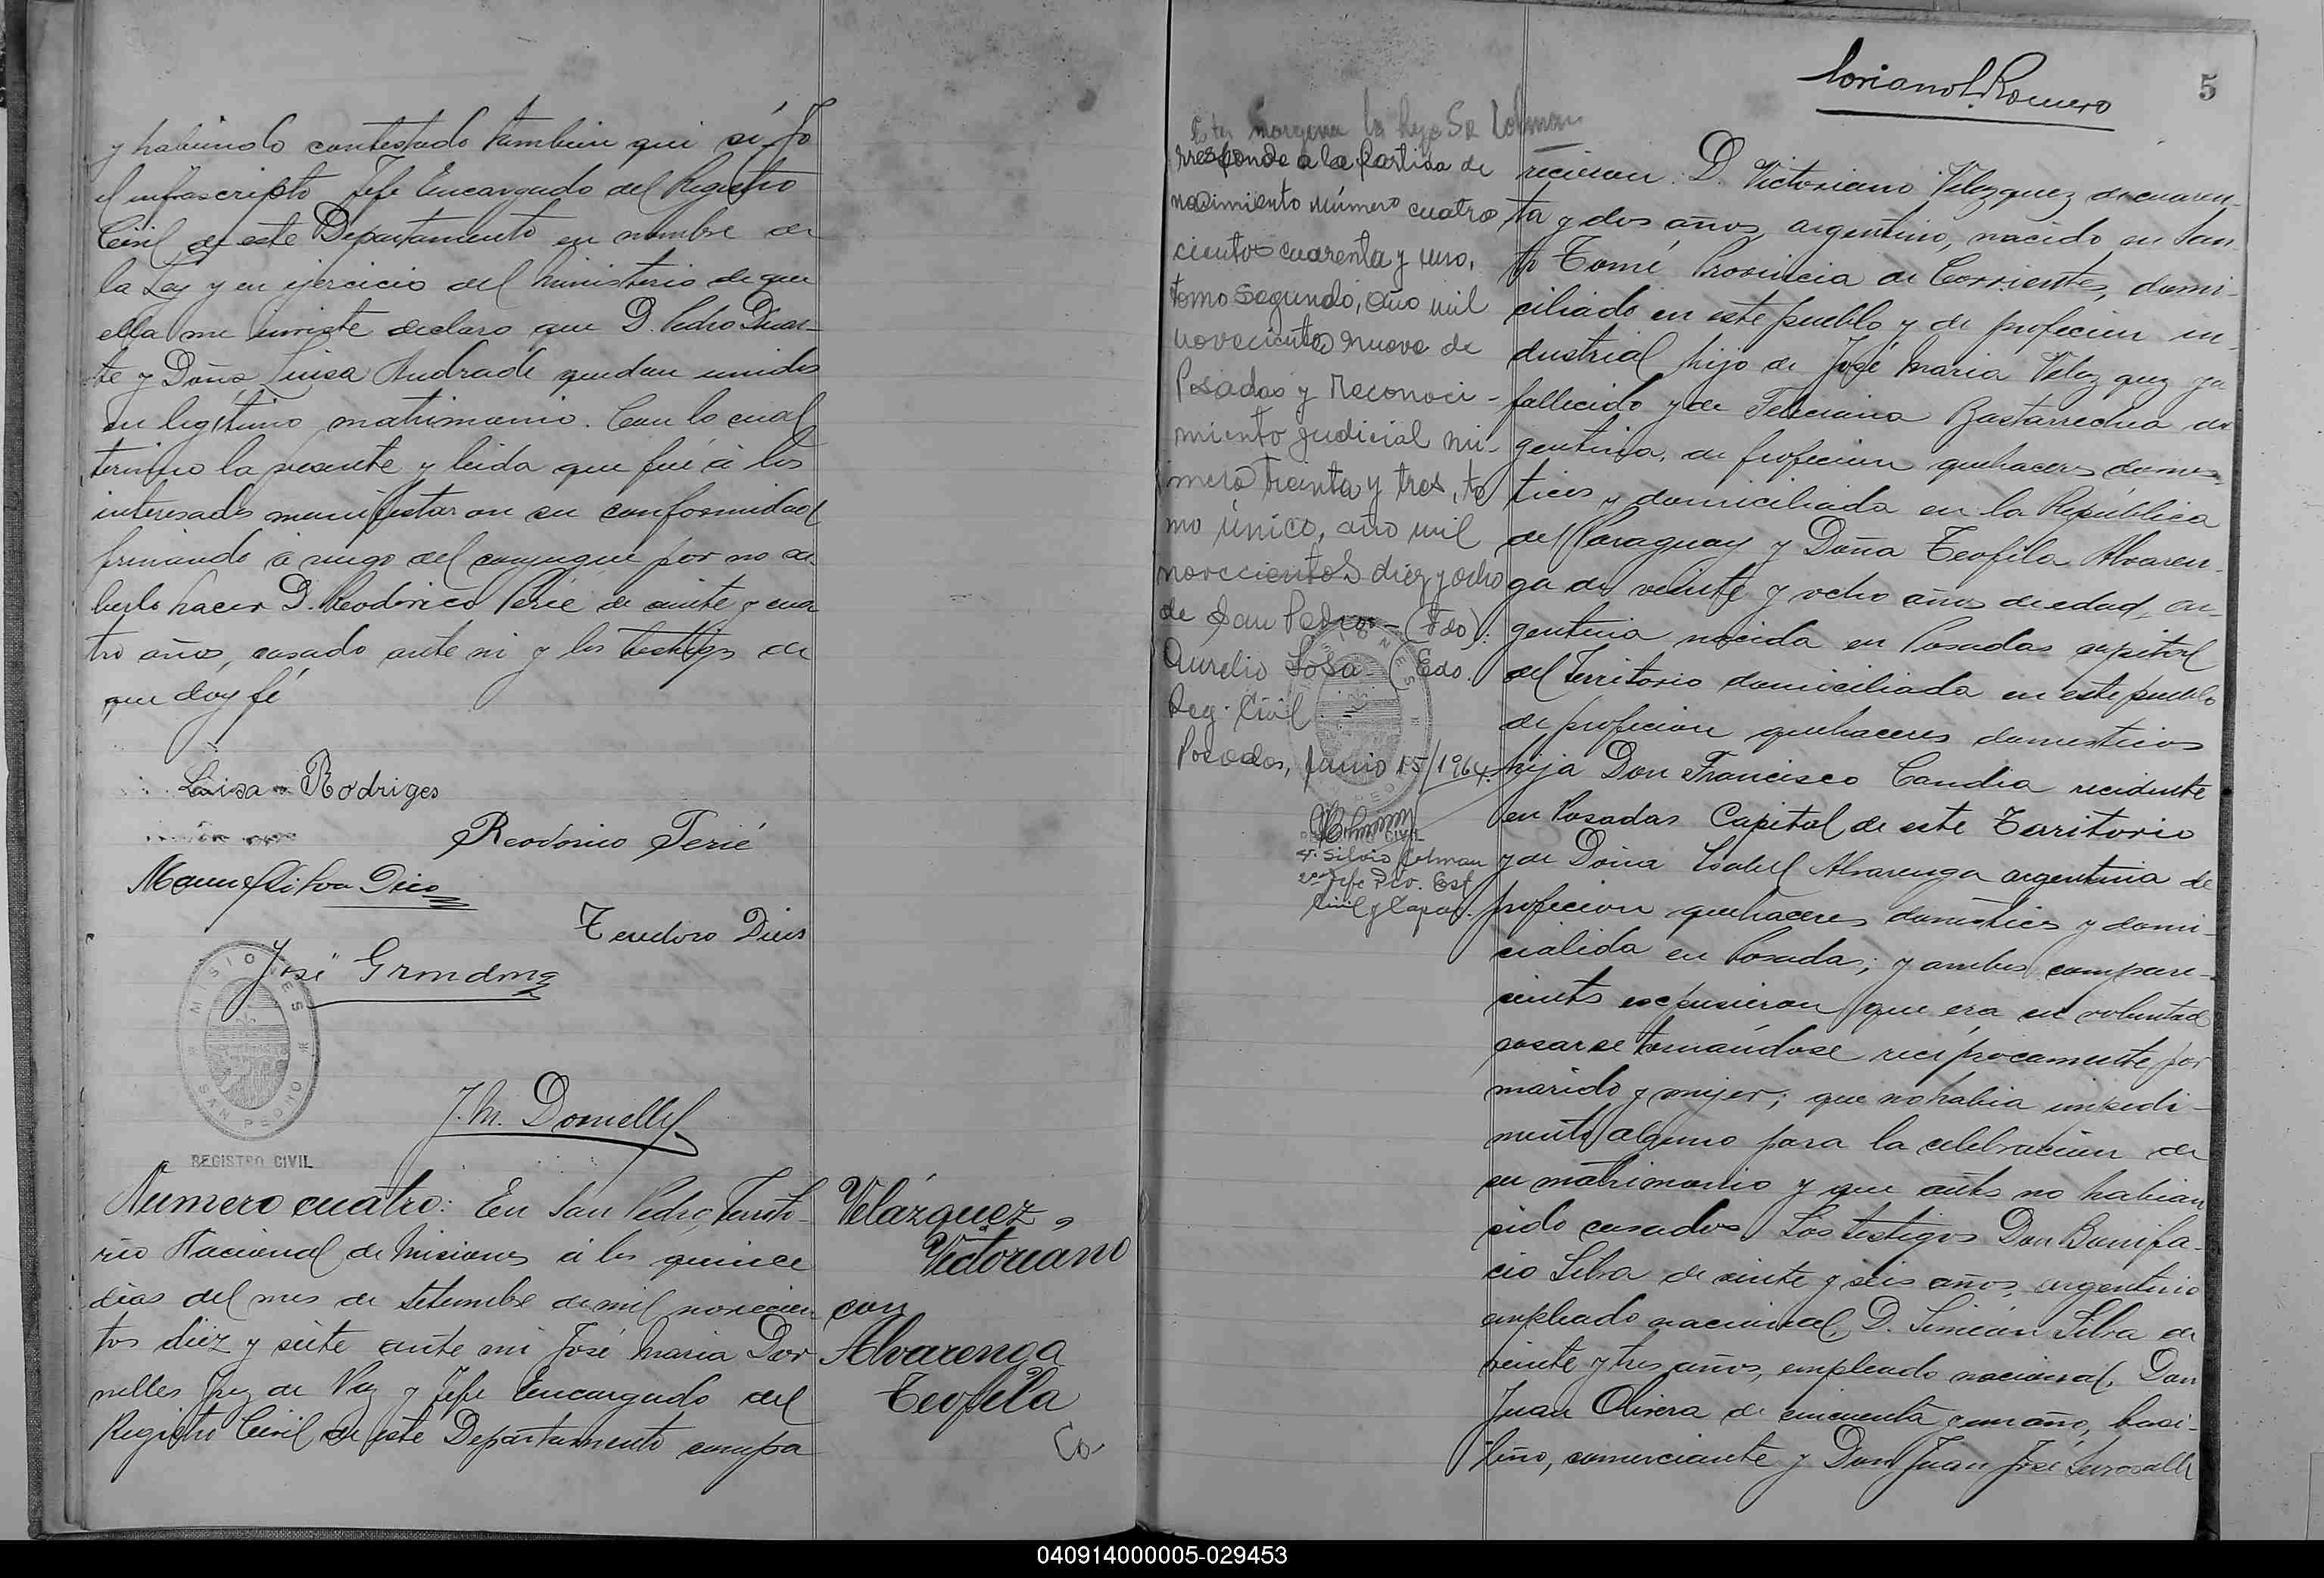 y habiendo contestado tambien que sí. Yo
el infrascripto Jefe Encargado del Registro
Civil de este Departamento en nombre de
la Ley y en ejercicio del Ministerio de que
ella me inviste declaro que D. Pedro Duar-
te y Doña Luisa Andrade quedan unidos
en legítimo matrimonio. Con lo cual
termino la presente y leida que fué á los
interesados manifestaron su conformidad
firmando á ruego del conyugue por no sa-
berlo hacer D. Reodorico Perié de veinte y cua
tro años, casado ante mi y los testigos de
que doy fé
Luisa Rodriges
Reodorico Perié
Manuel Silva Dico
Teodoro Dies
José
MISIONES
SAN PEDRO
REGISTRO CIVIL
J. M. Dornelles
Numero cuatro: En San Pedro, Territo-
rio Nacional de Misiones á los quince
dias del mes de Setiembre de mil novecien
tos diez y siete ante mi José Maria Dor
nelles Juez de Paz y Jefe Encargado del
Registro Civil de este Departamento compa
Velázquez,
Victoriano
con
Alvarenga
Teofila
Co-
5
Romero
rresponde a la Partida de
nacimiento número cuatro
cientos cuarenta y uno,
tomo segundo, año mil
novecientos nueve de
Posadas y reconoci-
miento judicial nú-
mero treinta y tres, to
mo único, año mil
novecientos diez y ocho
de San Pedro - (Fdo):
Aurelio Sosa - (Edo.
Reg. Civil
Posadas, Junio 15/1964.
Silvio Colman
2do Jefe Div. Est.
Civil y Capac.
recieron: D. Victoriano Velazquez de cuaren-
ta y dos años, argentino, nacido en San
to Tomé Provincia de Corrientes, domi-
ciliado en este pueblo y de profecion in-
dustrial hijo de José Maria Velazquez ya
fallecido y de Feliciana Bastarrechea ar
gentina, de profecion quehaceres domes
ticos y domiciliada en la República
del Paraguay y Doña Teofila Alvaren-
ga de veinte y ocho años de edad, ar-
gentina nacida en Posadas capital
del Territorio domiciliada en este pueblo
de profecion quehaceres domesticos
hija Don Francisco Candia recidente
en Posadas Capital de este Territorio
y de Doña Isabel Alvarenga argentina de
profecion quehaceres domésticos y domi-
cialida en Posadas; y ambos compare-
cientes expusieron que era su voluntad
casarse tomándose recíprocamente por
marido y mujer; que no habia impedi-
mento alguno para la celebracion de
su matrimonio y que antes no habian
sido casados. Los testigos Don Bonifa-
cio Silva de veinte y seis años, argentino
empleado nacional, D. Simeón Silva de
veinte y tres años, empleado nacional, Don
Juan Olivera de cincuenta y un año, brasi-
leño, comerciante y Don Juan José
040914000005-029453